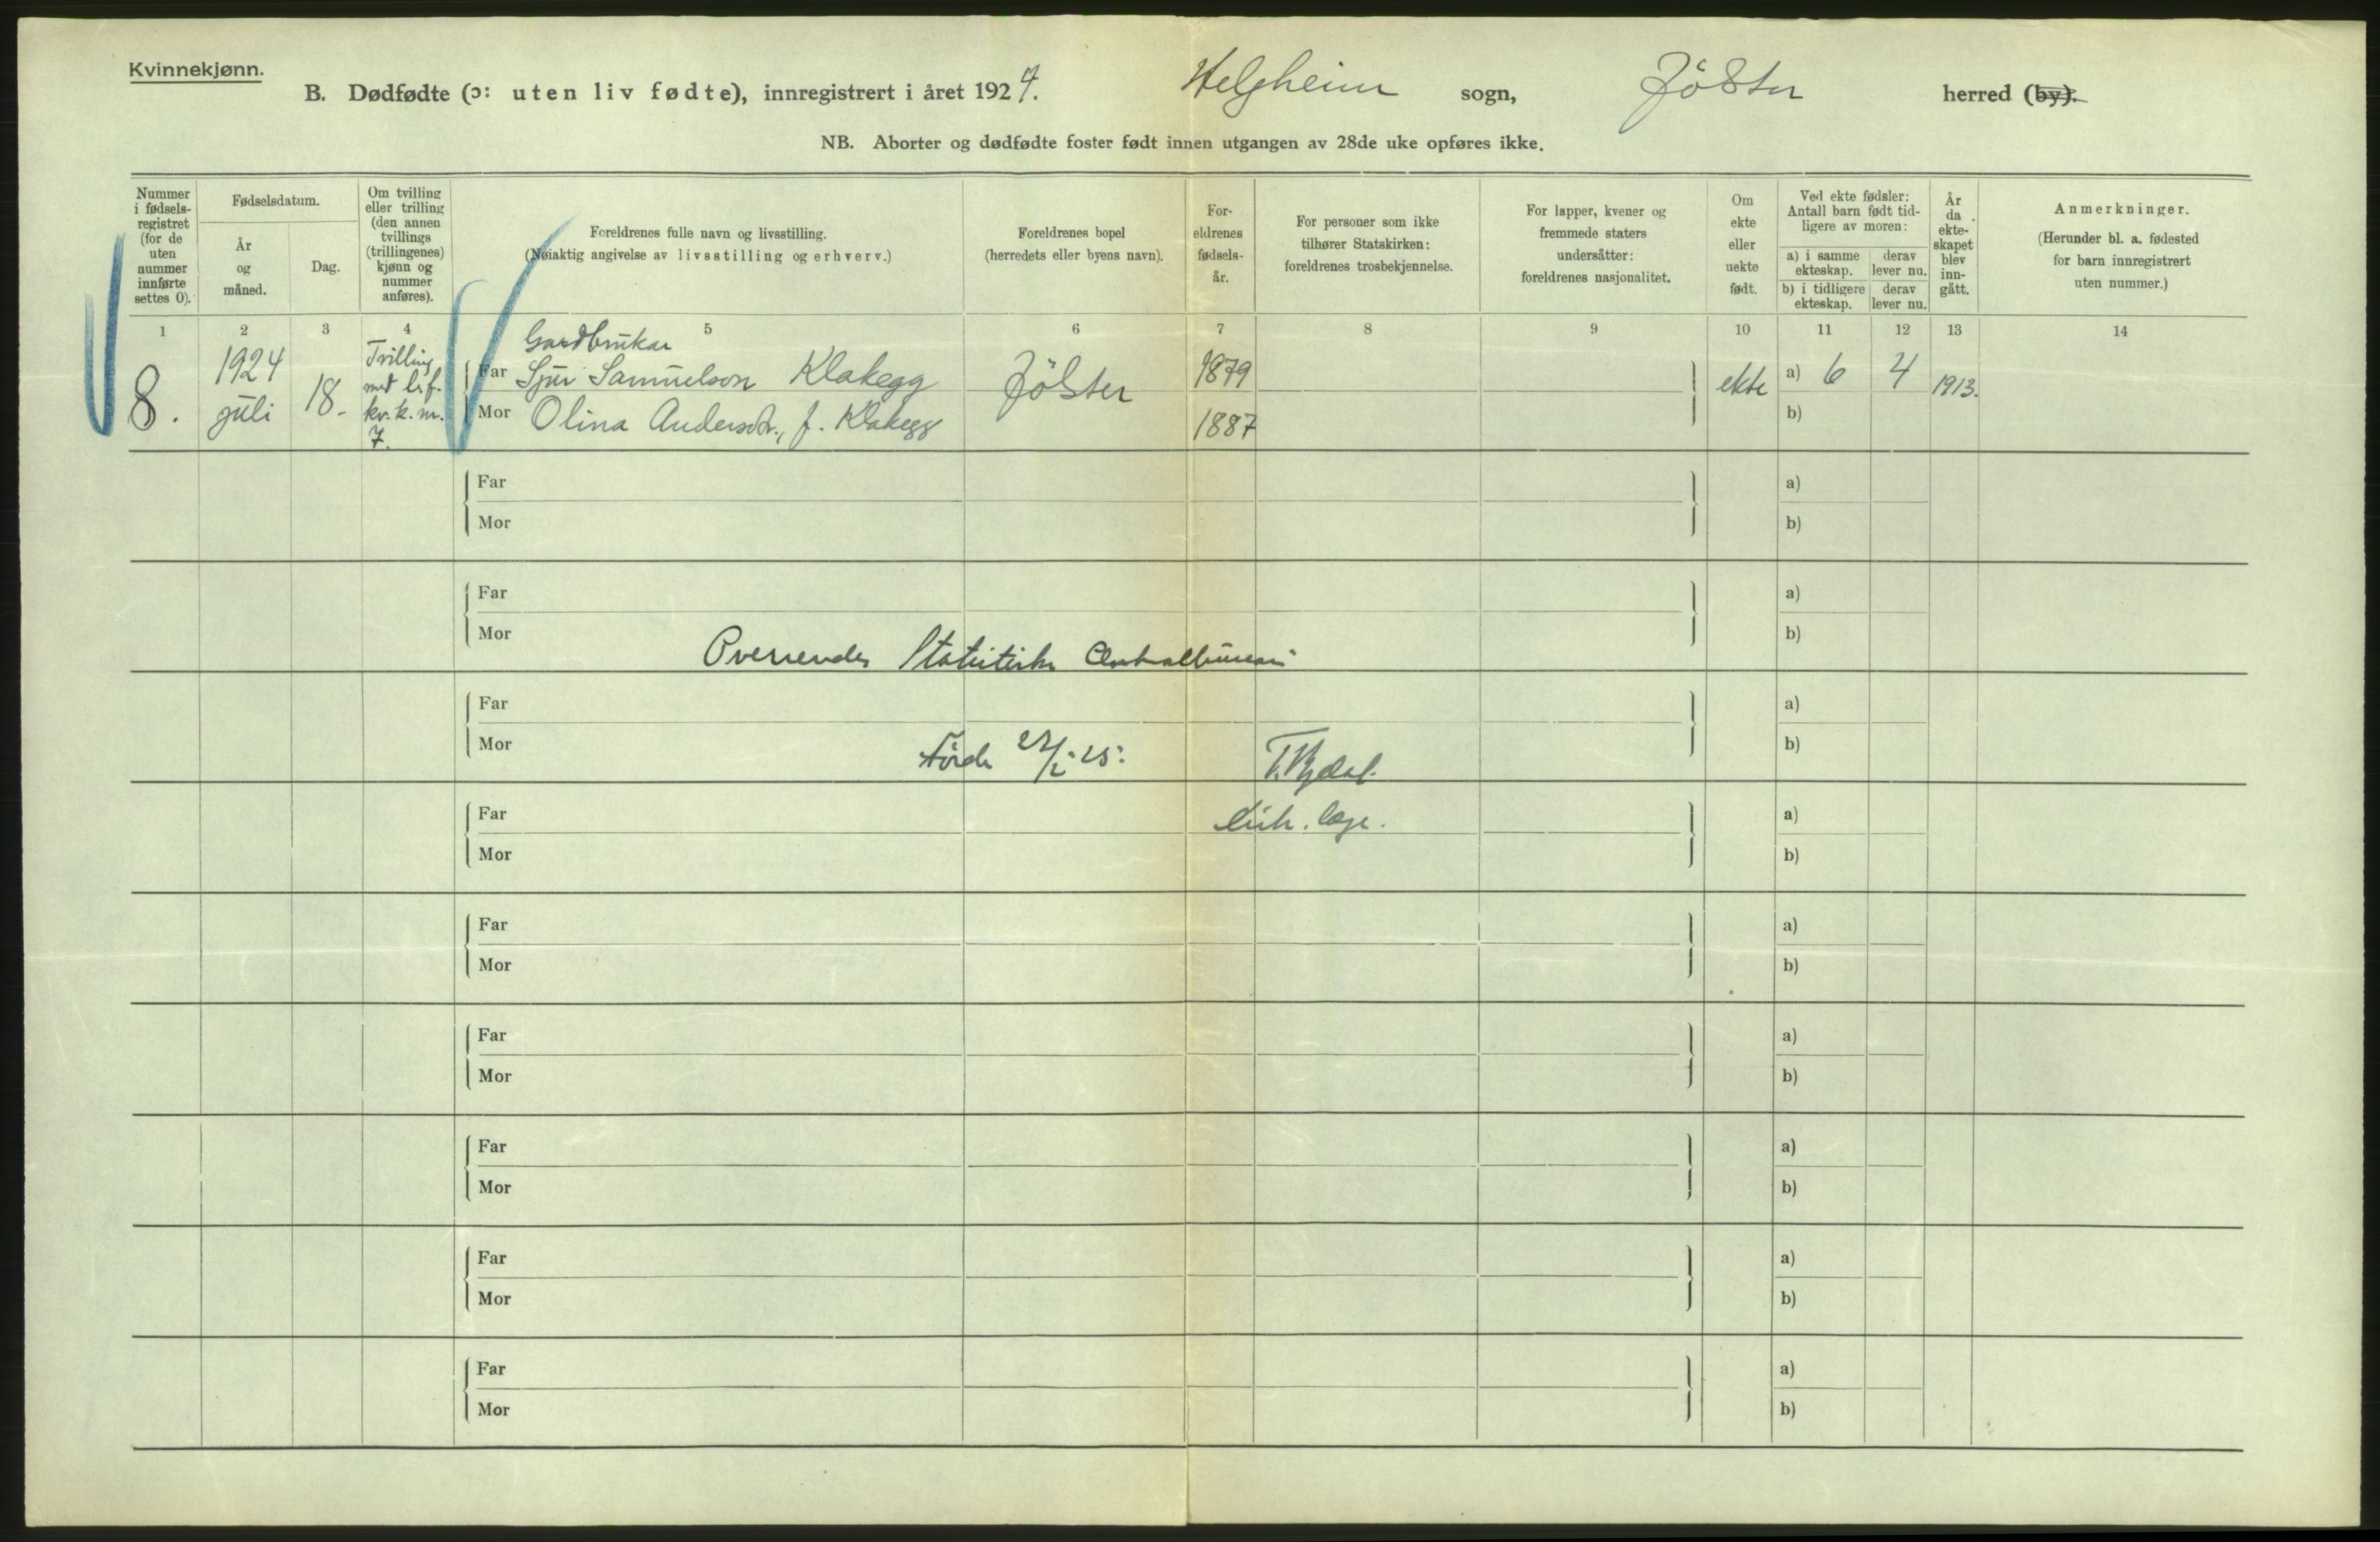 Kvinnekjønn.
B. Dødfødte (ɔ: uten liv fødte), innregistrert i året 1924. Helgheim sogn, Jölster herred (by).
NB. Aborter og dødfødte foster født innen utgangen av 28de uke opføres ikke.
Nummer
i fødsels-
registret
(for de
uten
nummer
innførte
settes 0).
Fødselsdatum.
År
og
måned.
Dag.
Om tvilling
eller trilling
(den annen
tvillings
(trillingenes)
kjønn og
nummer
anføres).
Foreldrenes fulle navn og livsstilling.
(Nøiaktig angivelse av livsstilling og erhverv.)
Foreldrenes bopel
(herredets eller byens navn).
For-
eldrenes
fødsels-
år.
For personer som ikke
tilhører Statskirken:
foreldrenes trosbekjennelse.
For lapper, kvener og
fremmede staters
undersåtter:
foreldrenes nasjonalitet.
Om
ekte
eller
uekte
født.
Ved ekte fødsler:
Antall barn født tid-
ligere av moren:
a) i samme
ekteskap.
derav
lever nu.
b) i tidligere
ekteskap.
derav
lever nu.
År
da
ekte-
skapet
blev
inn-
gått.
Anmerkninger.
(Herunder bl. a. fødested
for barn innregistrert
uten nummer.)
1 2 3 4 5 6 7 8 9 10 11 12 13 14
8.
1924
juli
18.
Tvilling
med lif.
kv. k. nr.
7.
Gardbrukar
Far Sjur Samuelson Klakegg
Mor Olina Andersdr., f. Klakegg
Jölster
1879
1887
ekte
a) 6 4
b)
1913.
Far a)
Mor b)
Far a)
Mor b)
Oversendes Statistiske Centralbureau
Far a)
Mor b)
Førde
Far a)
læge.
Mor b)
Far a)
Mor b)
Far a)
Mor b)
Far a)
Mor b)
Far a)
Mor b)
Far a)
Mor b)